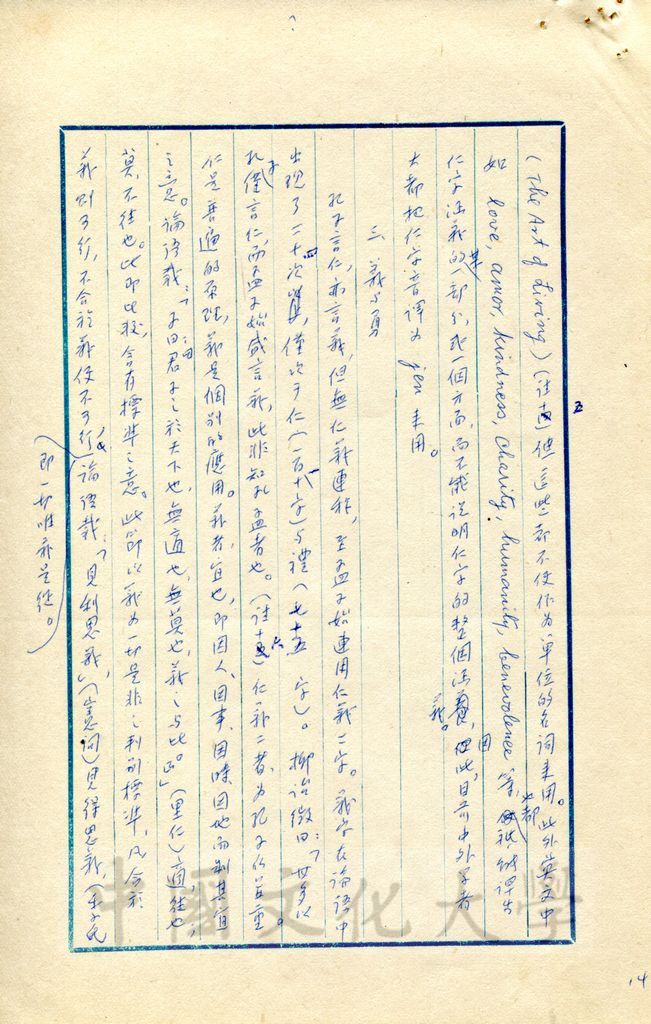 (The Art of Living)(註五)但這些都不便作為單位的名詞來用。此外英文中
如 love, amor, kindness, charity, humanity, benevolence 等，大都祇能譯出
仁字涵義的某一部分，或一個方面，而不能說明仁字的整個涵義。因此，目前中外學者
大都把仁字音譯為 jen 來用。
三 義與勇
孔子言仁，亦言義，但無仁義連稱，至孟子始連用仁義二字。義字在論語中
出現了二十四次，僅次于仁（一百八字）與禮（七十五字）。柳詒徵曰：「世多以
孔子僅言仁，而孟子始盛言義，此非知孔孟者也。（註六）仁義二者，為孔子所並重。
仁是普遍的原理，義是個別的應用。義者宜也，即因人、因事、因時因地而制其宜
之意。論語載：「子曰：君子之於天下也，無適也，無莫也，義之與比。」（里仁）適，往也，
莫，不往也。比即比較，含有標準之意。此即以義為一切是非之判別標準，凡合於
義則可行，不合於義便不可行，論語載：「見利思義」，（憲問）見得思義，（季氏
即一切唯義是從。
中國文化大學
14